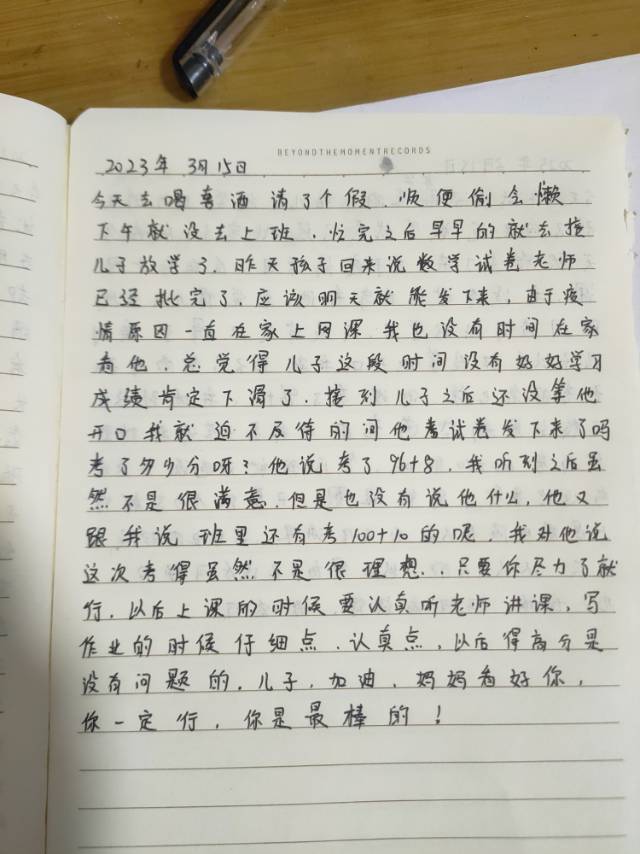 BEYONDTHEMOMENTRECORDS
2023年 3月15日
今天去喝喜酒请了个假.顺便偷个懒
下午就没去上班.忙完之后早早的就去接
儿子放学了.昨天孩子回来说数学试卷老师
已经批完了.应该明天就能发下来,由于疫
情原因一直在家上网课我也没有时间在家
看他.总觉得儿子这段时间没有好好学习
成绩肯定下滑了.接到儿子之后还没等他
开口我就迫不及待的问他考试卷发下来了吗
考了多少分呀?他说考了96+8,我听到之后虽
然不是很满意.但是也没有说他什么,他又
跟我说班里还有考100+10的呢,我对他说
这次考得虽然不是很理想..只要你尽力了就
行.以后上课的时候要认真听老师讲课,写
作业的时候仔细点.认真点,以后得高分是
没有问题的.儿子,加油,妈妈看好你,
你一定行,你是最棒的!